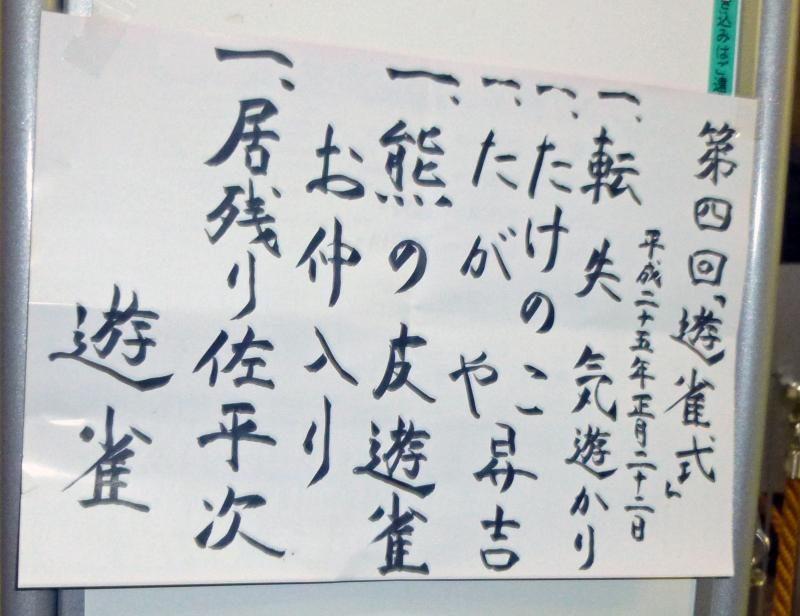 第四回「遊雀式」
平成二十五年正月二十二日
一、転失気遊かり
一、たけのこ
一、たがや昇吉
一、熊の皮遊雀
お仲入り
一、居残り佐平次
遊雀
込みはご遠